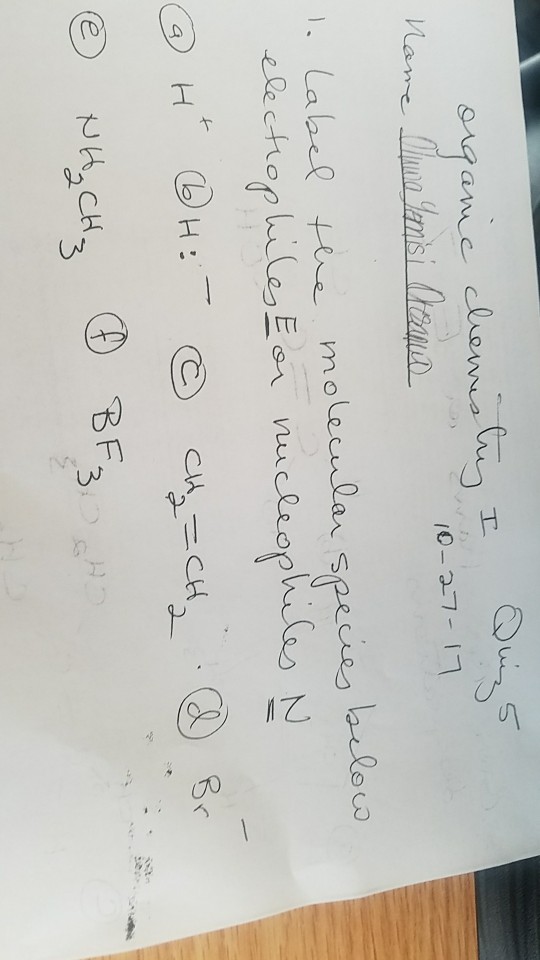 Organic chemistry I Quiz 5
Name 10-27-17
1. Label the molecular species below
electrophiles E or nucleophiles N
(a) H⁺ (b) H:⁻ (c) CH₂=CH₂ . (d) Br⁻
(e) NH₂CH₃ (f) BF₃